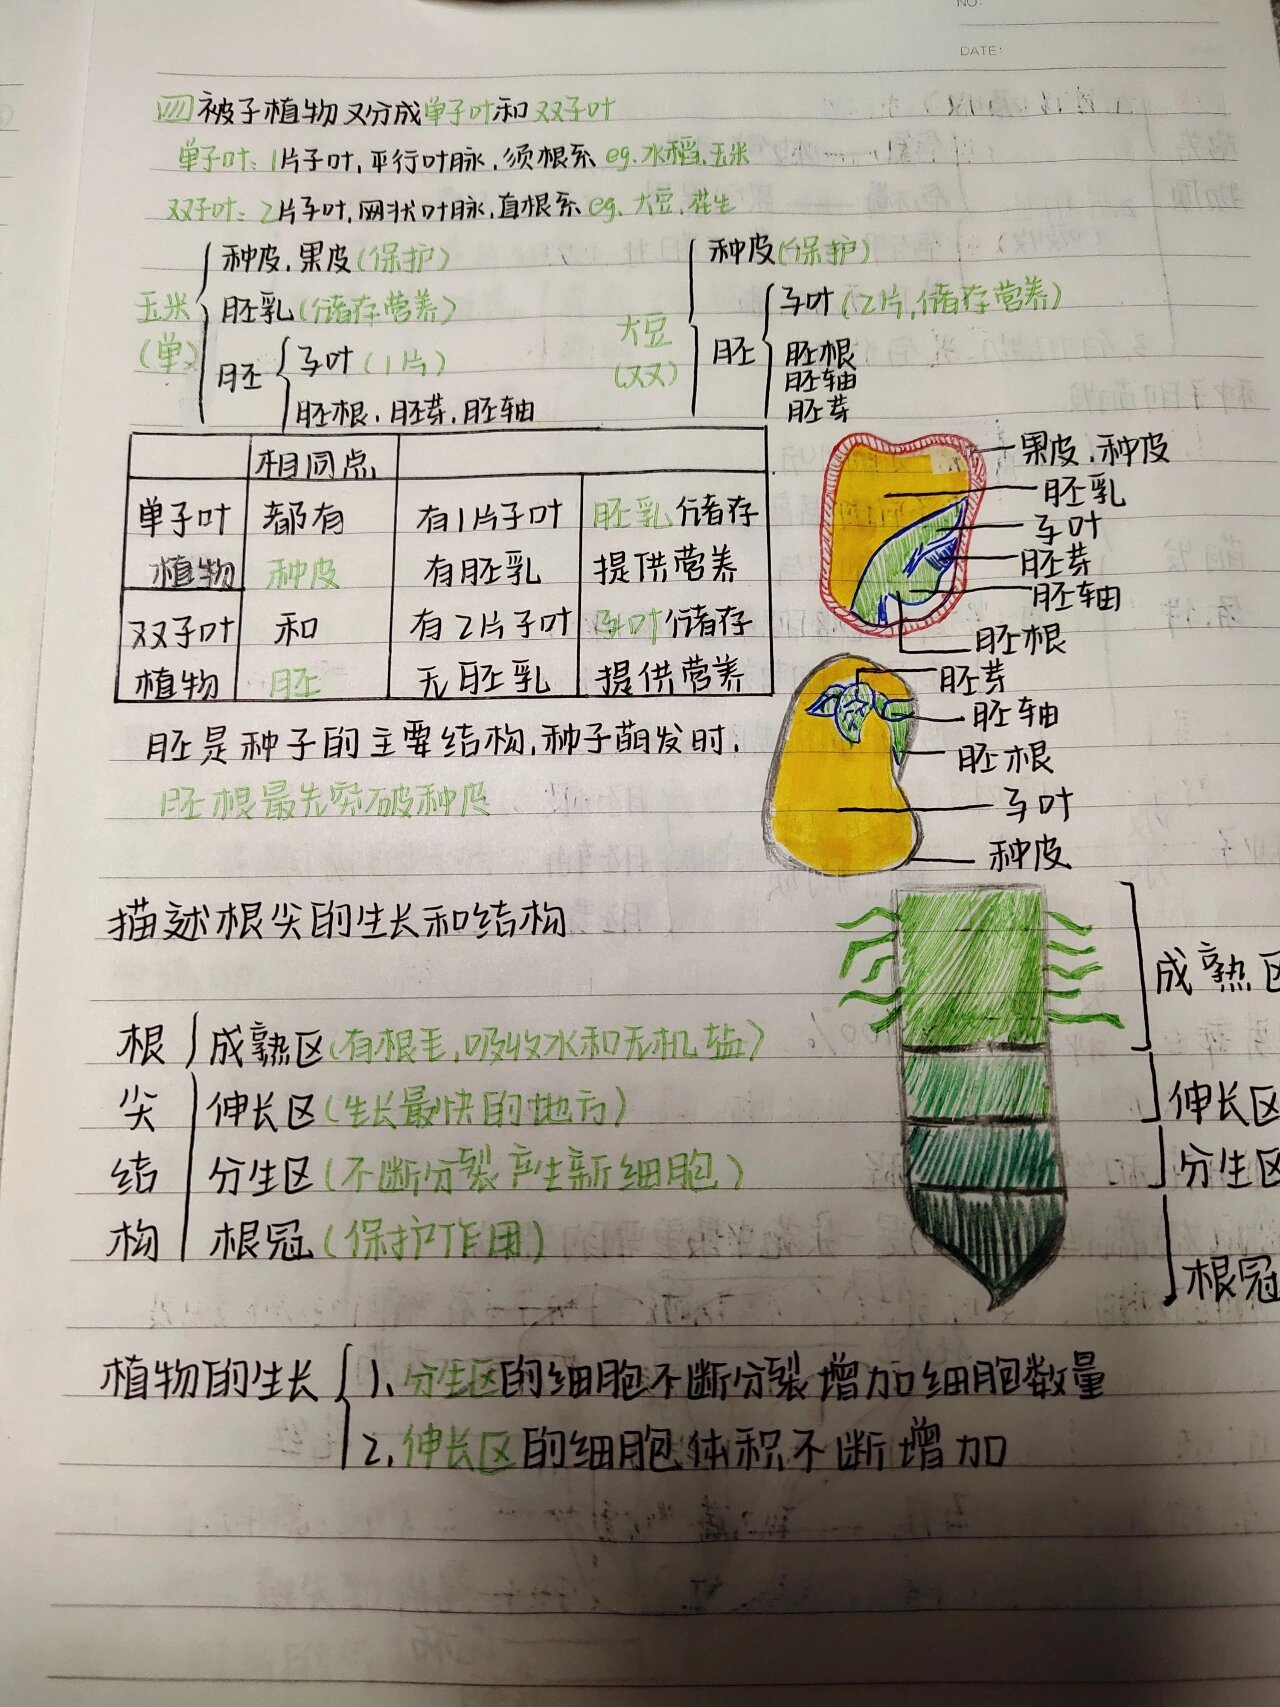 NO:
DATE:
四 被子植物又分成单子叶和双子叶
单子叶：1片子叶,平行叶脉,须根系 eg.水稻.玉米
双子叶：2片子叶,网状叶脉,直根系 eg、大豆,花生
玉米(单)
种皮.果皮(保护)
胚乳(储存营养)
胚
子叶(1片)
胚根.胚芽.胚轴
大豆(双)
种皮(保护)
胚
子叶(2片,储存营养)
胚根
胚轴
胚芽
相同点
单子叶 都有 有1片子叶 胚乳储存
植物 种皮 有胚乳 提供营养
双子叶 和 有2片子叶 子叶储存
植物 胚 无胚乳 提供营养
果皮.种皮
胚乳
子叶
胚芽
胚轴
胚根
胚芽
胚轴
胚根
子叶
种皮
胚是种子的主要结构,种子萌发时,
胚根最先突破种皮
描述根尖的生长和结构
根尖结构
成熟区(有根毛,吸收水和无机盐)
伸长区(生长最快的地方)
分生区(不断分裂产生新细胞)
根冠(保护作用)
成熟区
伸长区
分生区
根冠
植物的生长
1、分生区的细胞不断分裂增加细胞数量
2、伸长区的细胞体积不断增加